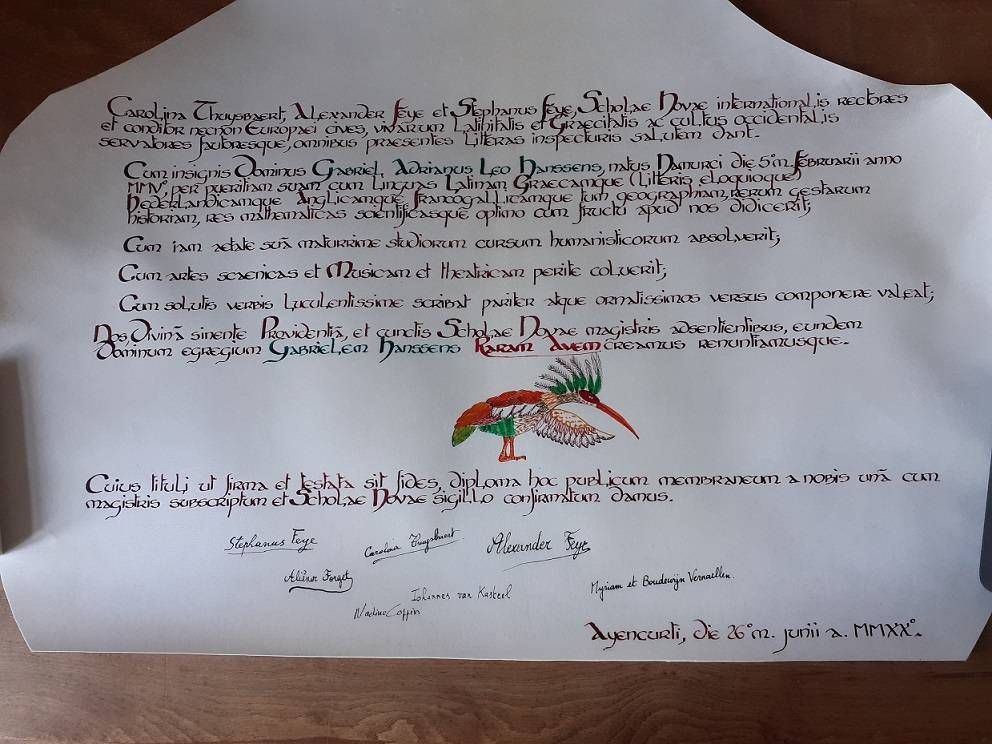 Carolina Thuysbaert, Alexander Feye et Stephanus Feye, Scholae Novae internationalis rectores
et conditor necnon Europaei cives, vivarum Latinitatis et Graecitatis ac cultus occidentalis
servatores fautoresque, omnibus praesentes Litteras inspecturis salutem dant.
Cum insignis Dominus Gabriel Adrianus Leo Hanssens, natus Namurci die 5°m. Februarii anno
MMV°, per pueritiam suam cum linguas Latinam Graecamque (litteris, eloquioque)
Nederlandicamque Anglicamque, francogallicamque tum geographiam, rerum gestarum
historiam, res mathematicas scientificasque optimo cum fructu apud nos didicerit;
Cum iam aetate suā maturrime studiorum cursum humanisticorum absolverit;
Cum artes scaenicas et Musicam et theatricam perite coluerit;
Cum solutis verbis luculentissime scribat pariter atque ornatissimos versus componere valeat;
Nos Divinā sinente Providentiā, et cunctis Scholae Novae magistris adsentientibus, eundem
dominum egregium Gabrielem Hanssens Raram Avem creamus renuntiamusque.
Cuius tituli ut firma et testata sit fides, diploma hoc publicum membraneum a nobis unā cum
magistris subscriptum et Scholae Novae sigillo confirmatum damus.
Stephanus Feye Carolina Thuysbaert Alexander Feye
Aliénor Forget Johannes van Kasteel Myriam et Boudewijn Vernaillen.
Nadine Coppin
Ayencurti, die 26°m. junii a. MMXX°.